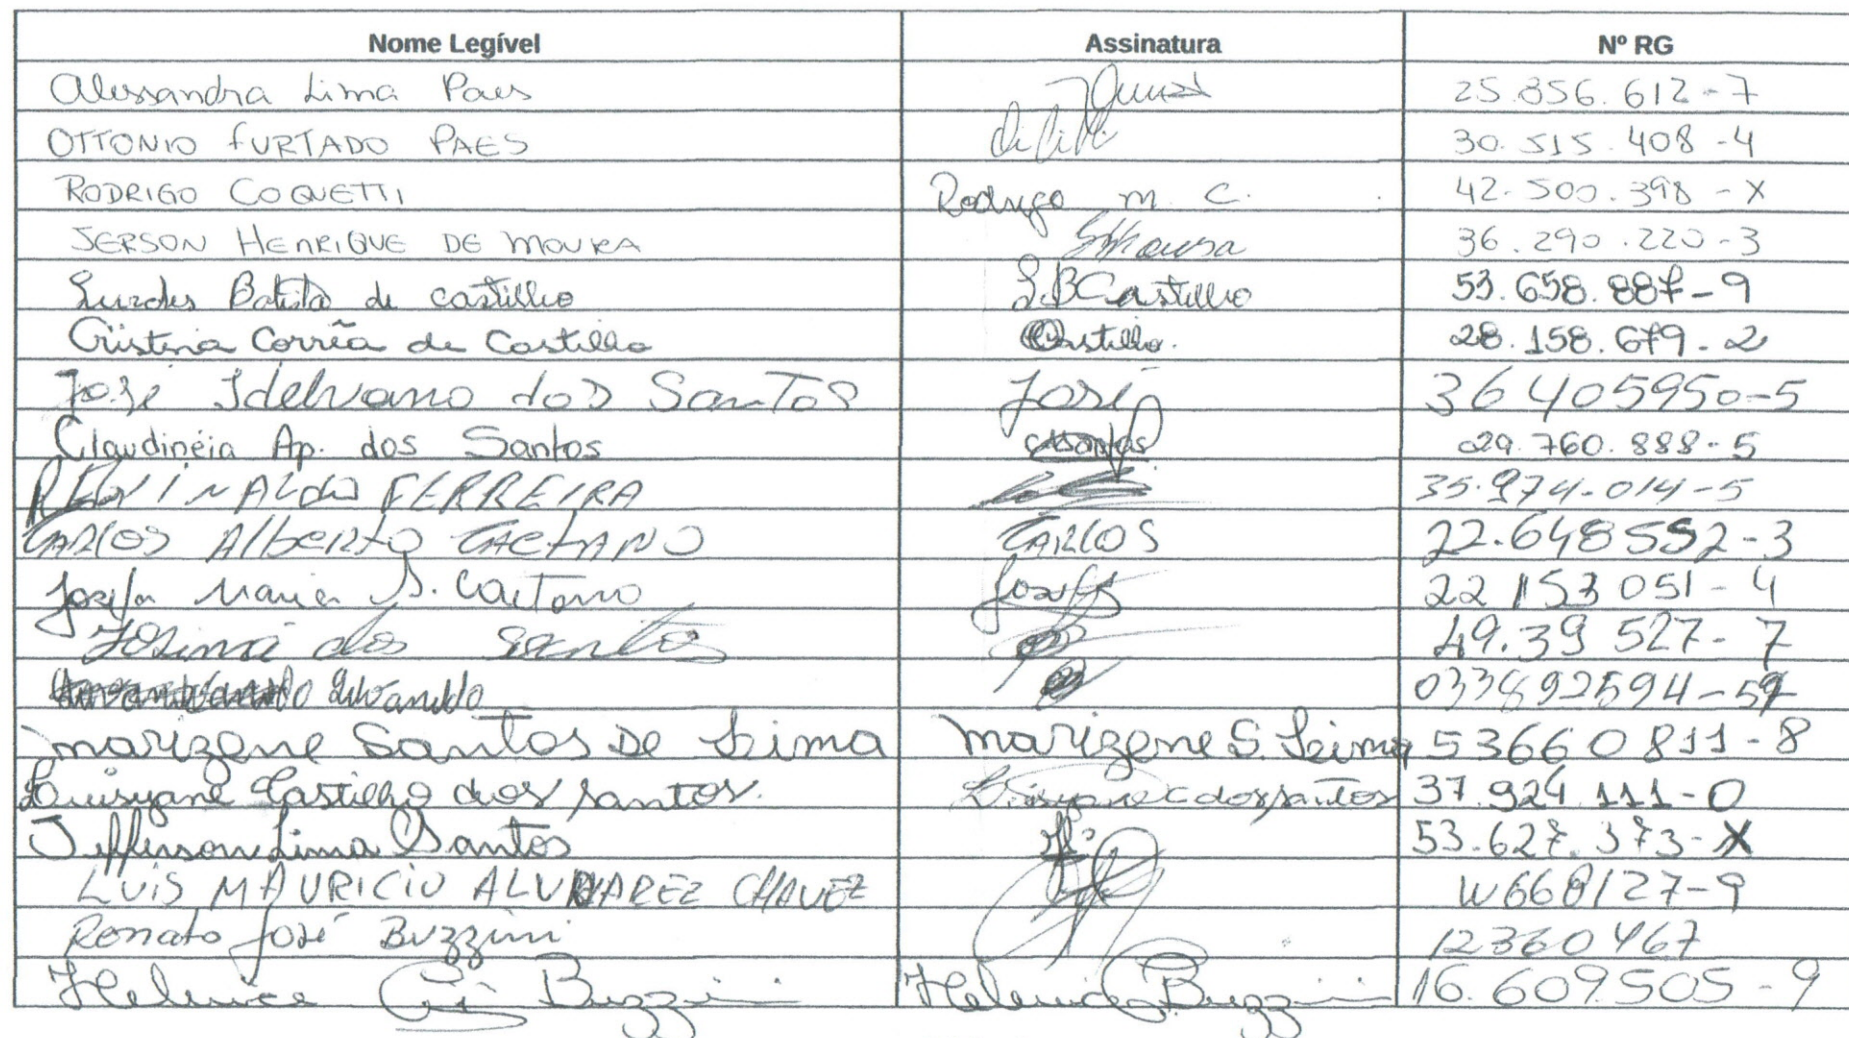 Nome Legível Assinatura Nº RG
Alessandra Lima Paes 25.856.612-7
OTTONIO FURTADO PAES 30.515.408-4
RODRIGO COQUETTI Rodrigo m. C. 42.500.398-X
JERSON HENRIQUE DE MOURA 36.290.220-3
Lurdes Batista de castilho L.B Castilho 53.658.887-9
Cristina Corrêa de Castilho Castilho. 28.158.679-2
José Idelvano dos Santos José 36 405950-5
Claudinéia Ap. dos Santos 29.760.888-5
FERREIRA 35.974-014-5
CARLOS AlbeRto CAetANO CARLOS 22.648552-3
Josefa Maria S. Caetano Josefa 22 153 051-4
dos Santos 49.39 527-7
033892594-59
marizene Santos De Lima marizene S. Leima 53660811-8
Luisyane Castilho dos santos. Luisyane C dos santos 37.924.111-0
Jefferson Lima Santos 53.627.373-X
LUIS MAURICIO ALVAREZ CHAVEZ W668127-9
Renato José Buzzini 12360467
Helenice Buzzini Helenice Buzzini 16.609.505-9